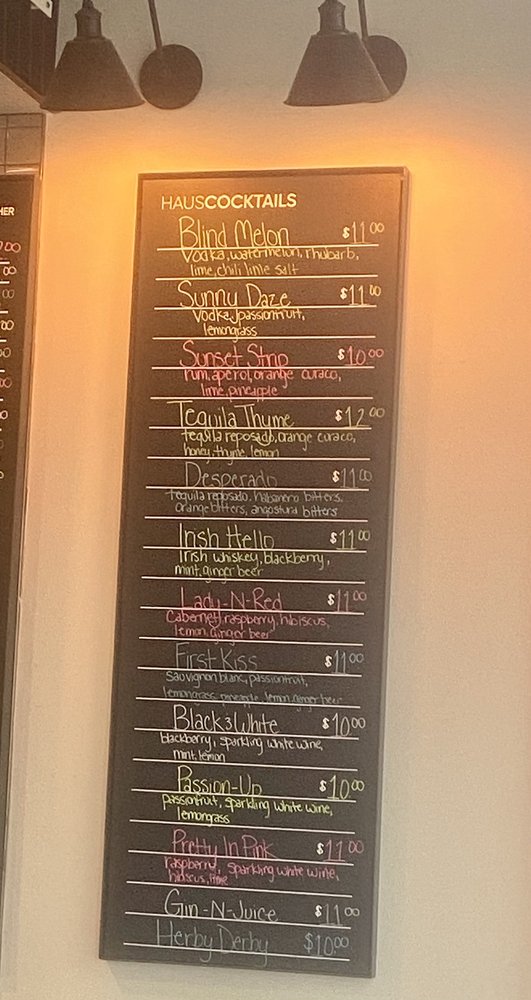 HER
HAUSCOCKTAILS
Blind Melon $11.00
Vodka, watermelon, rhubarb,
lime, chili lime salt
Sunny Daze $11.00
Vodka, passionfruit,
lemongrass
Sunset Strip $10.00
rum, aperol, orange curaco,
lime, pineapple
Tequila Thyme $12.00
tequila reposado, orange curaco,
honey, thyme, lemon
Desperado $11.00
tequila reposado, habanero bitters,
orange bitters, angostura bitters
Irish Hello $11.00
Irish whiskey, blackberry,
mint, ginger beer
Lady-N-Red $11.00
Cabernet, raspberry, hibiscus,
lemon, ginger beer
First Kiss $11.00
Sauvignon blanc, passionfruit,
lemongrass, pineapple, lemon, ginger beer
Black & White $10.00
blackberry, sparkling white wine,
mint, lemon
Passion-Up $10.00
passionfruit, sparkling white wine,
lemongrass
Pretty In Pink $11.00
raspberry, sparkling white wine,
hibiscus, lime
Gin-N-Juice $11.00
Herby Derby $10.00